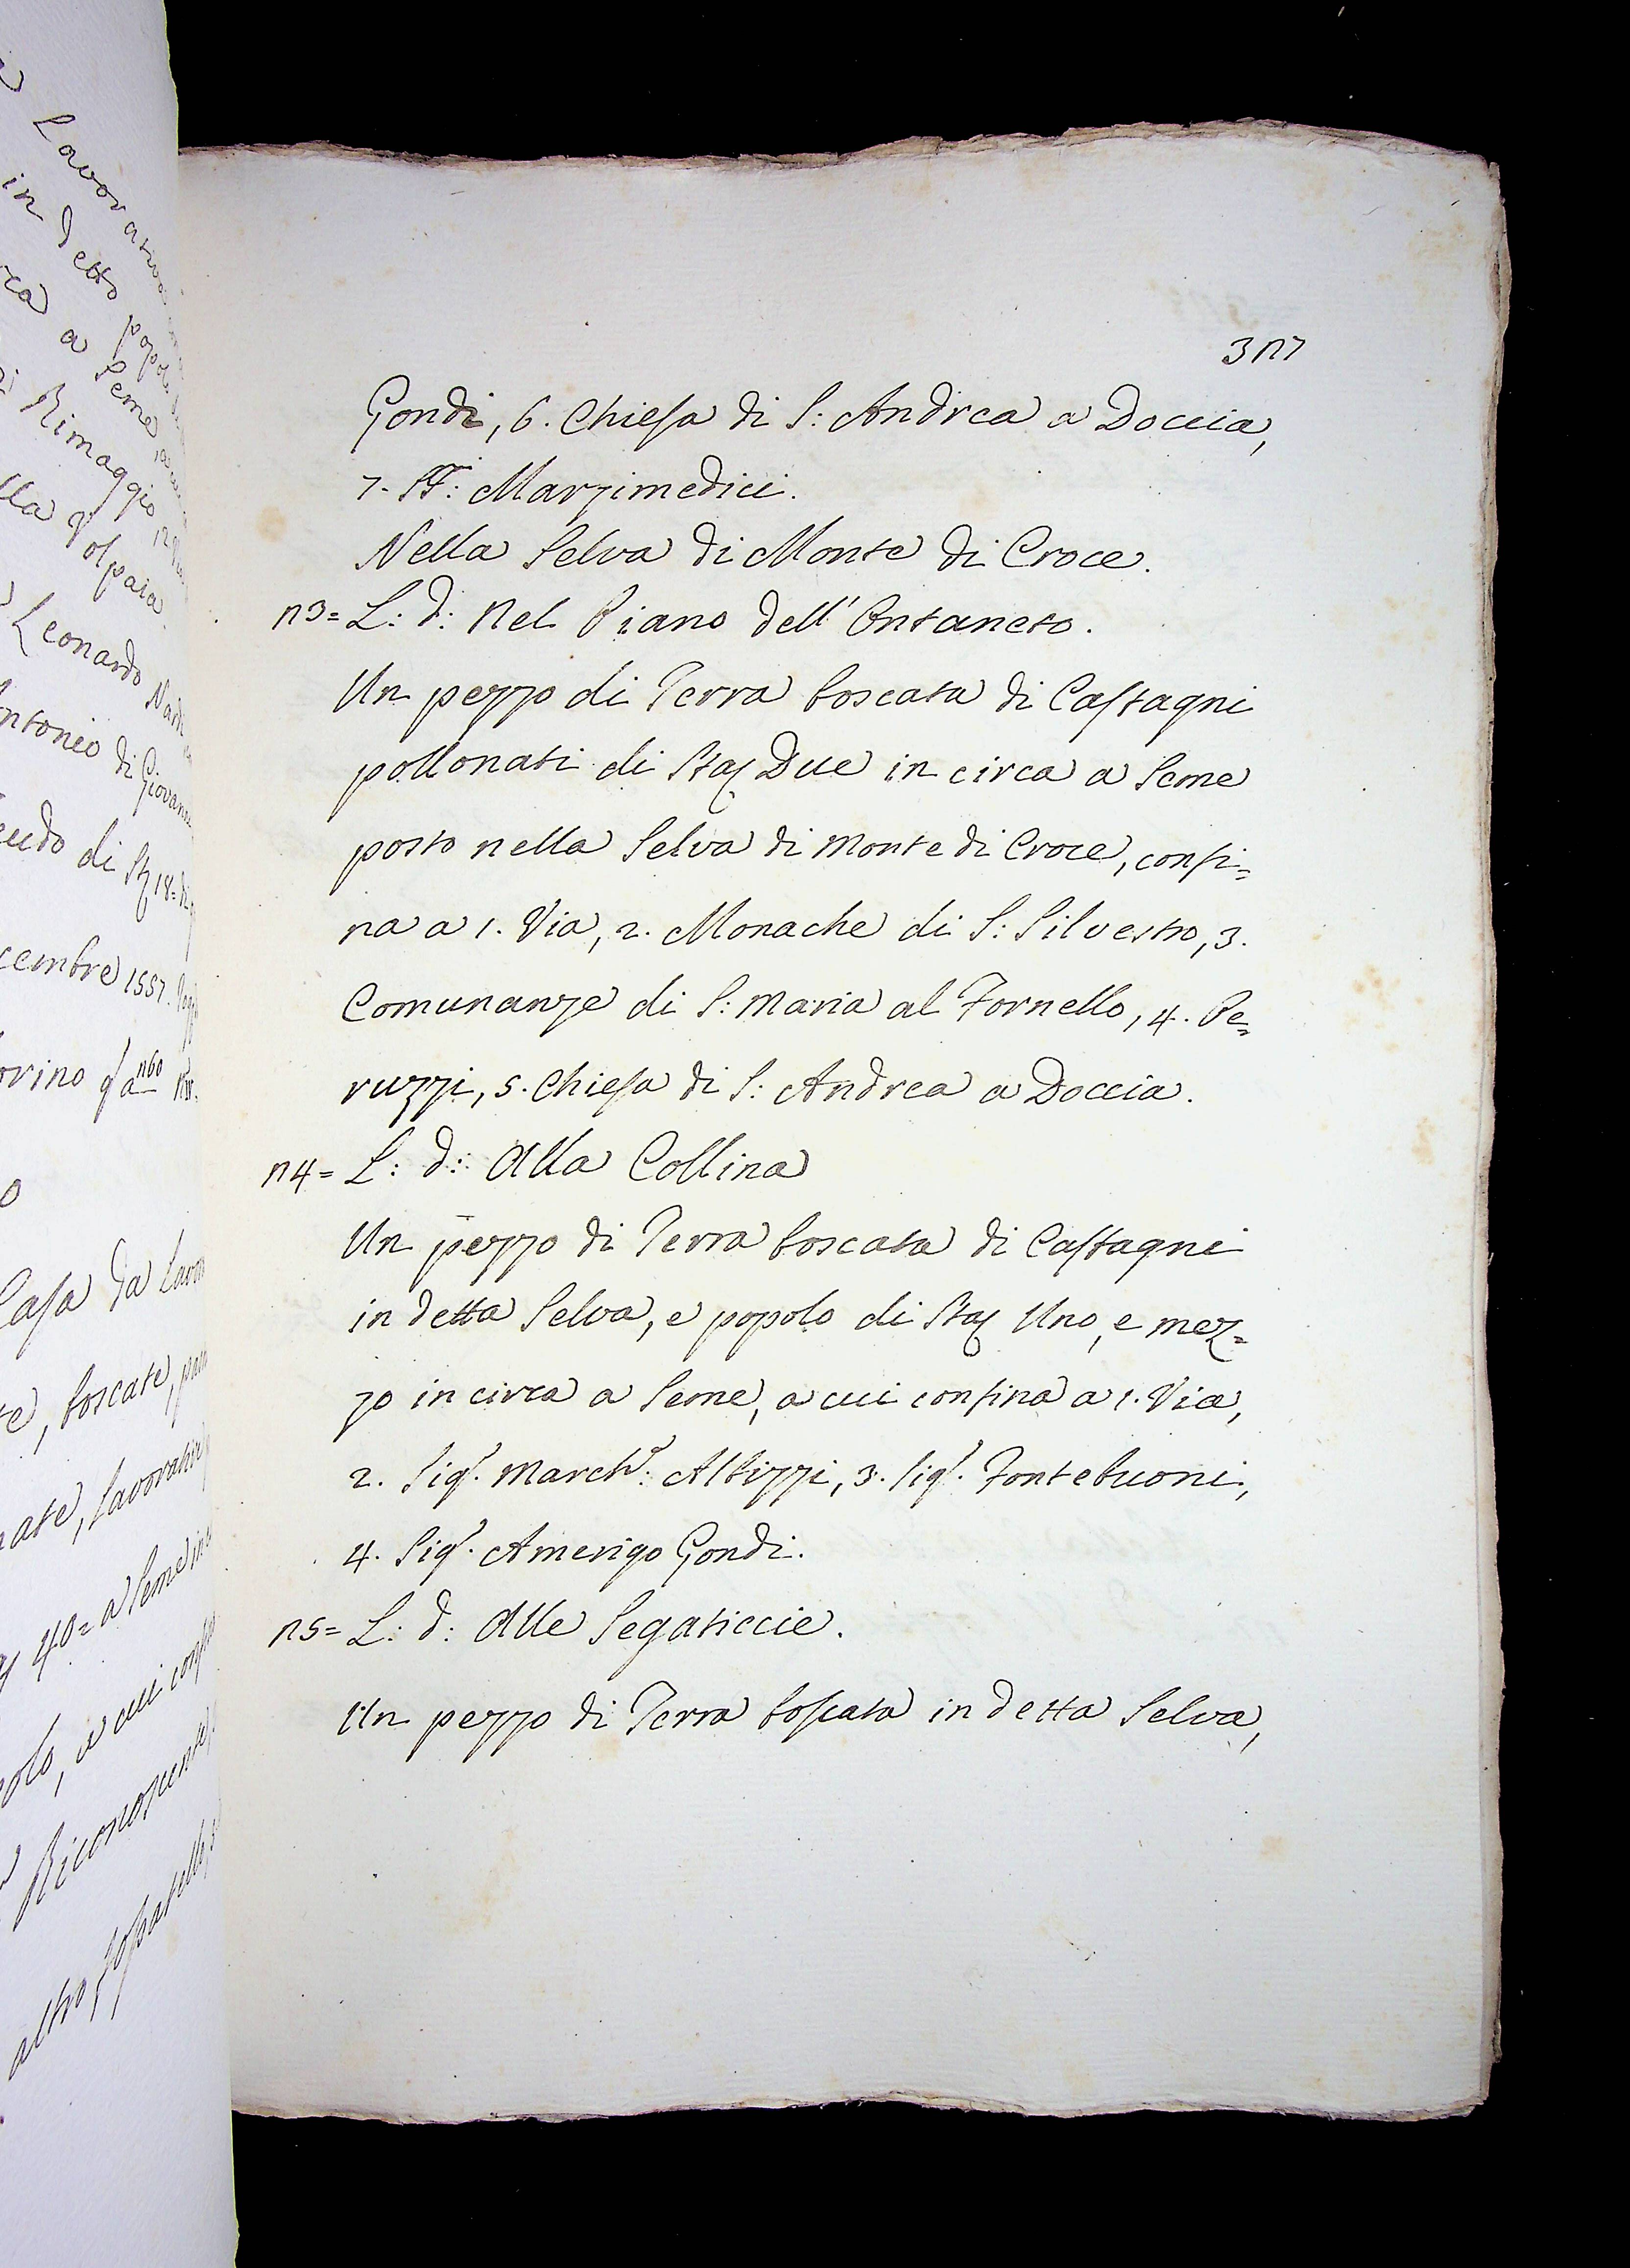 Lavorativa
in detto popolo
a Seme
Rimaggio
Volpaia
Leonardo
di Giovanni
di
1557.
Casa da
boscate,
40= a Seme
altro
327
Gondi, 6. Chiesa di S: Andrea a Doccia,
7. SS:ri Marzimedici.
Nella Selva di Monte di Croce.
23= L: d: Nel Piano dell' Ontaneto.
Un pezzo di Terra boscata di Castagni
pollonati di Sta: Due in circa a Seme
posto nella Selva di Monte di Croce, confi=
na a 1. Via, 2. Monache di S: Silvestro, 3.
Comunanze di S: Maria al Fornello, 4. Pe=
ruzzi, 5. Chiesa di S: Andrea a Doccia.
24= L: d: Alla Collina
Un pezzo di Terra boscata di Castagni
in detta Selva, e popolo di Sta: Uno, e mez=
zo in circa a Seme, a cui confina a 1. Via,
2. Sig.r March.e: Albizzi, 3. Sig.r Fontebuoni,
4. Sig.r Amerigo Gondi.
25= L: d: Alle Segaticcie.
Un pezzo di Terra boscata in detta Selva,